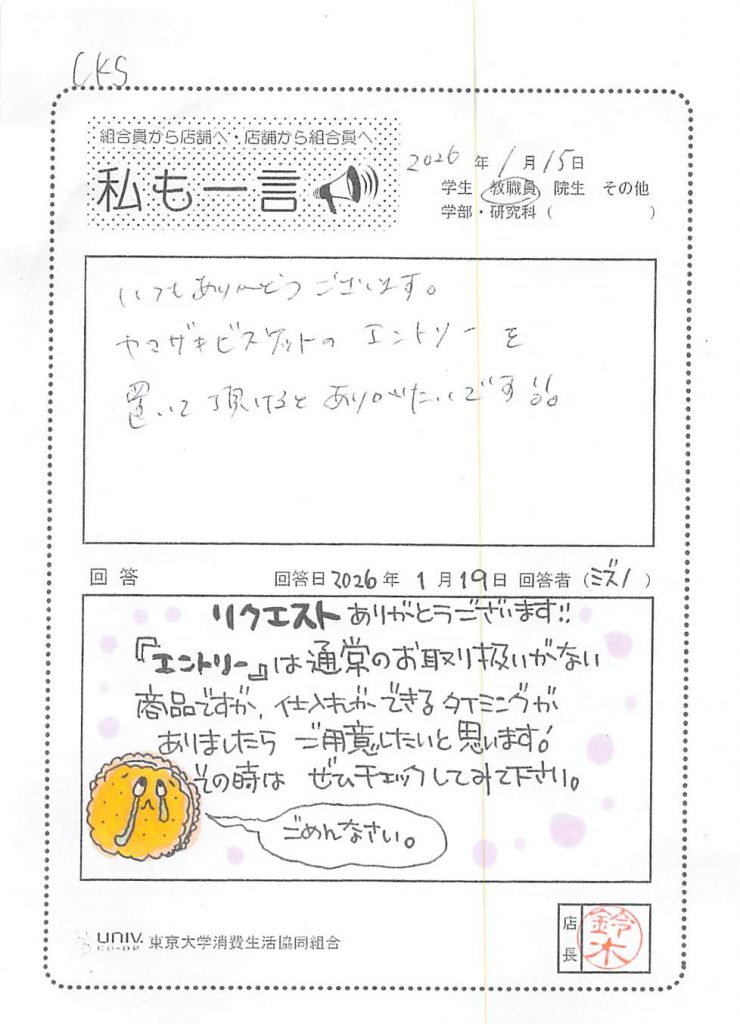 CKS
組合員から店舗へ・店舗から組合員へ
私も一言
2026年1月15日
学生 教職員 院生 その他
学部・研究科( )
いつもありがとうございます。
ヤマザキビスケットの エントリーを
置いて頂けるとありがたいです!!
回答 回答日2026年1月19日 回答者(ミズノ)
リクエストありがとうございます!!
『エントリー』は通常のお取り扱いがない
商品ですが、仕入れができるタイミングが
ありましたら ご用意したいと思います!
その時は ぜひチェックしてみて下さい。
ごめんなさい。
UNIV. CO-OP 東京大学消費生活協同組合
店長 鈴木